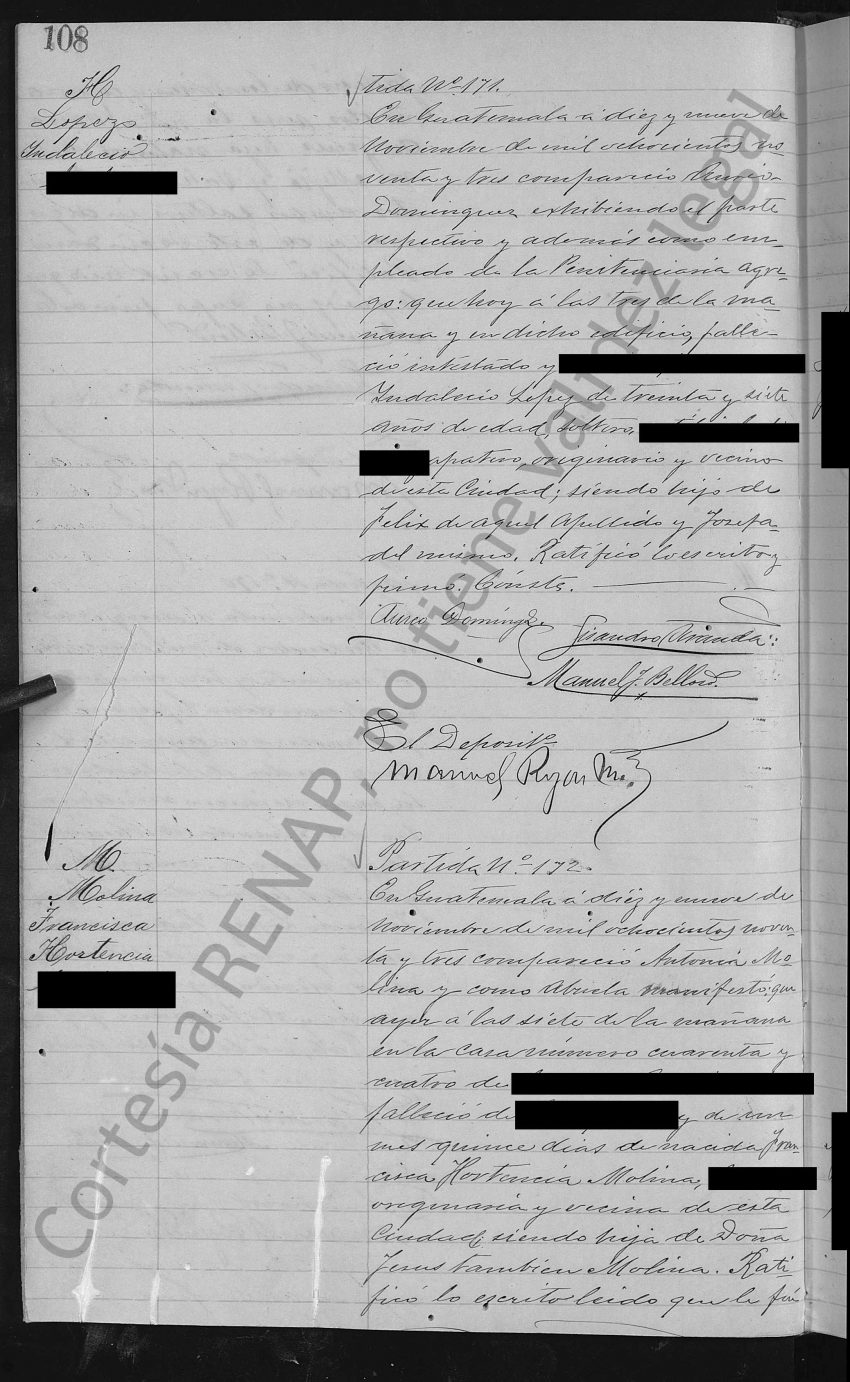 108
H
Lopez
Indalecio
tida Nº 171.
En Guatemala á diez y nueve de
Noviembre de mil ochocientos no-
venta y tres compareció Aureo
Dominguez exhibiendo el parte
respectivo y además como em-
pleado de la Penitenciaria agre-
go: que hoy á las tres de la ma-
ñana y en dicho edificio, falle-
ció intestado y
Indalecio Lopez de treinta y siete
años de edad, soltero,
apatero, originario y vecino
de esta Ciudad; siendo hijo de
Felix de aquel apellido y Josefa
del mismo. Ratificó lo escrito y
firmó. Conste.
Aureo Domingz.
Lisandro Aranda
Manuel J.
El Deposito
Manuel
M.
Molina
Francisca
Hortencia
Partida Nº 172.
En Guatemala á diez y nueve de
Noviembre de mil ochocientos noven-
ta y tres compareció Antonia Mo
lina y como abuela manifestó: que
ayer á las siete de la mañana
en la casa número cuarenta y
cuatro de
falleció de y de un
mes quince dias de nacida Fran-
cisca Hortencia Molina,
originaria y vecina de esta
Ciudad; siendo hija de Doña
Jesus tambien Molina. Rati-
ficó lo escrito leido que le fué
Cortesía RENAP, no tiene validez legal